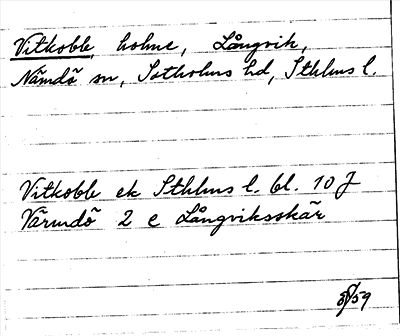 Vitkobb, holme, Långvik,
Nämdö sn, Sotholms hd, Sthlms l.
Vitkobb ek Sthlms l. bl. 10 J
Värmdö 2 e Långviksskär